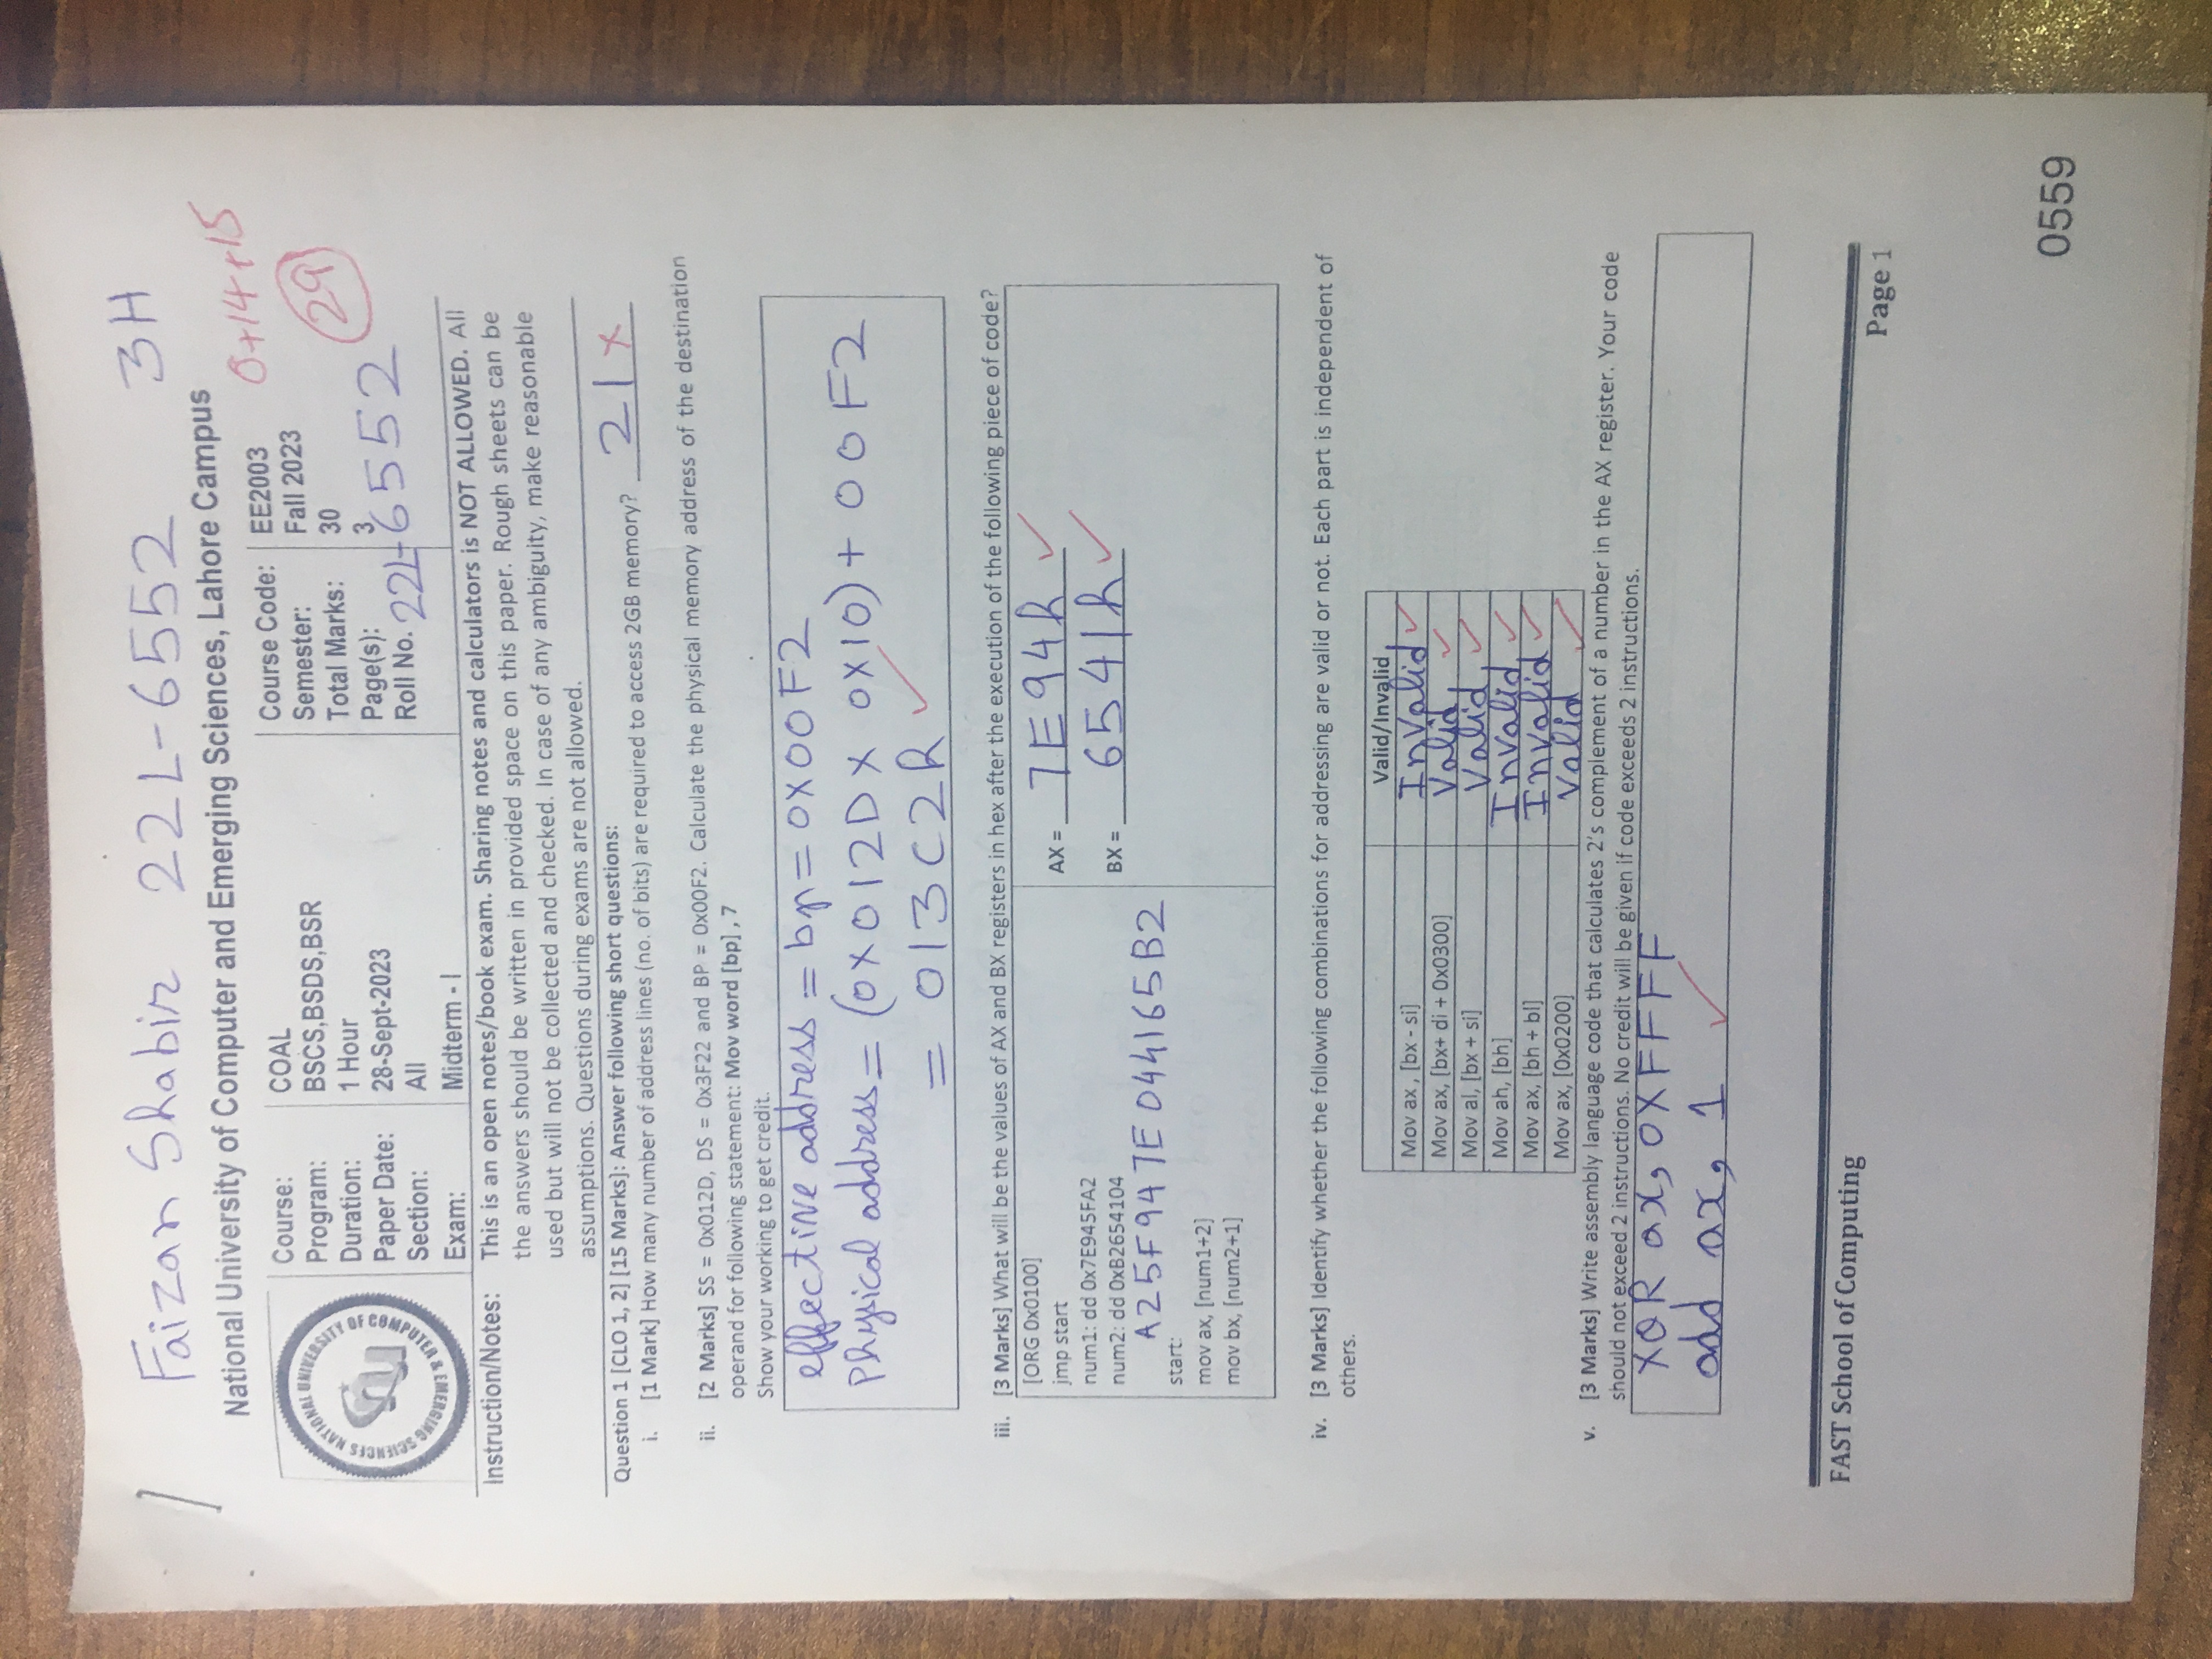 Faizan Shabir 22L-6552 3H
National University of Computer and Emerging Sciences, Lahore Campus
0+14+15
29
NATIONAL UNIVERSITY OF COMPUTER & EMERGING SCIENCES
Course: COAL
Program: BSCS,BSDS,BSR
Duration: 1 Hour
Paper Date: 28-Sept-2023
Section: All
Exam: Midterm - I
Course Code: EE2003
Semester: Fall 2023
Total Marks: 30
Page(s): 3
Roll No. 22L-6552
Instruction/Notes: This is an open notes/book exam. Sharing notes and calculators is NOT ALLOWED. All
the answers should be written in provided space on this paper. Rough sheets can be
used but will not be collected and checked. In case of any ambiguity, make reasonable
assumptions. Questions during exams are not allowed.
Question 1 [CLO 1, 2] [15 Marks]: Answer following short questions:
i. [1 Mark] How many number of address lines (no. of bits) are required to access 2GB memory? 21 x
ii. [2 Marks] SS = 0x012D, DS = 0x3F22 and BP = 0x00F2. Calculate the physical memory address of the destination
operand for following statement: Mov word [bp] , 7
Show your working to get credit.
effective address = bp = 0X00F2
Physical address = (0X012D X 0X10) + 00F2
= 013C2h ✓
iii. [3 Marks] What will be the values of AX and BX registers in hex after the execution of the following piece of code?
[ORG 0x0100]
jmp start
num1: dd 0x7E945FA2
num2: dd 0xB2654104
A25F947E044165B2
start:
mov ax, [num1+2]
mov bx, [num2+1]
AX = 7E94h ✓
BX = 6541h ✓
iv. [3 Marks] Identify whether the following combinations for addressing are valid or not. Each part is independent of
others.
Valid/Invalid
Mov ax , [bx - si] Invalid ✓
Mov ax, [bx+ di + 0x0300] Valid ✓
Mov al, [bx + si] Valid ✓
Mov ah, [bh] Invalid ✓
Mov ax, [bh + bl] Invalid ✓
Mov ax, [0x0200] Valid ✓
v. [3 Marks] Write assembly language code that calculates 2's complement of a number in the AX register. Your code
should not exceed 2 instructions. No credit will be given if code exceeds 2 instructions.
XOR ax, 0XFFFF
add ax, 1 ✓
FAST School of Computing
Page 1
0559